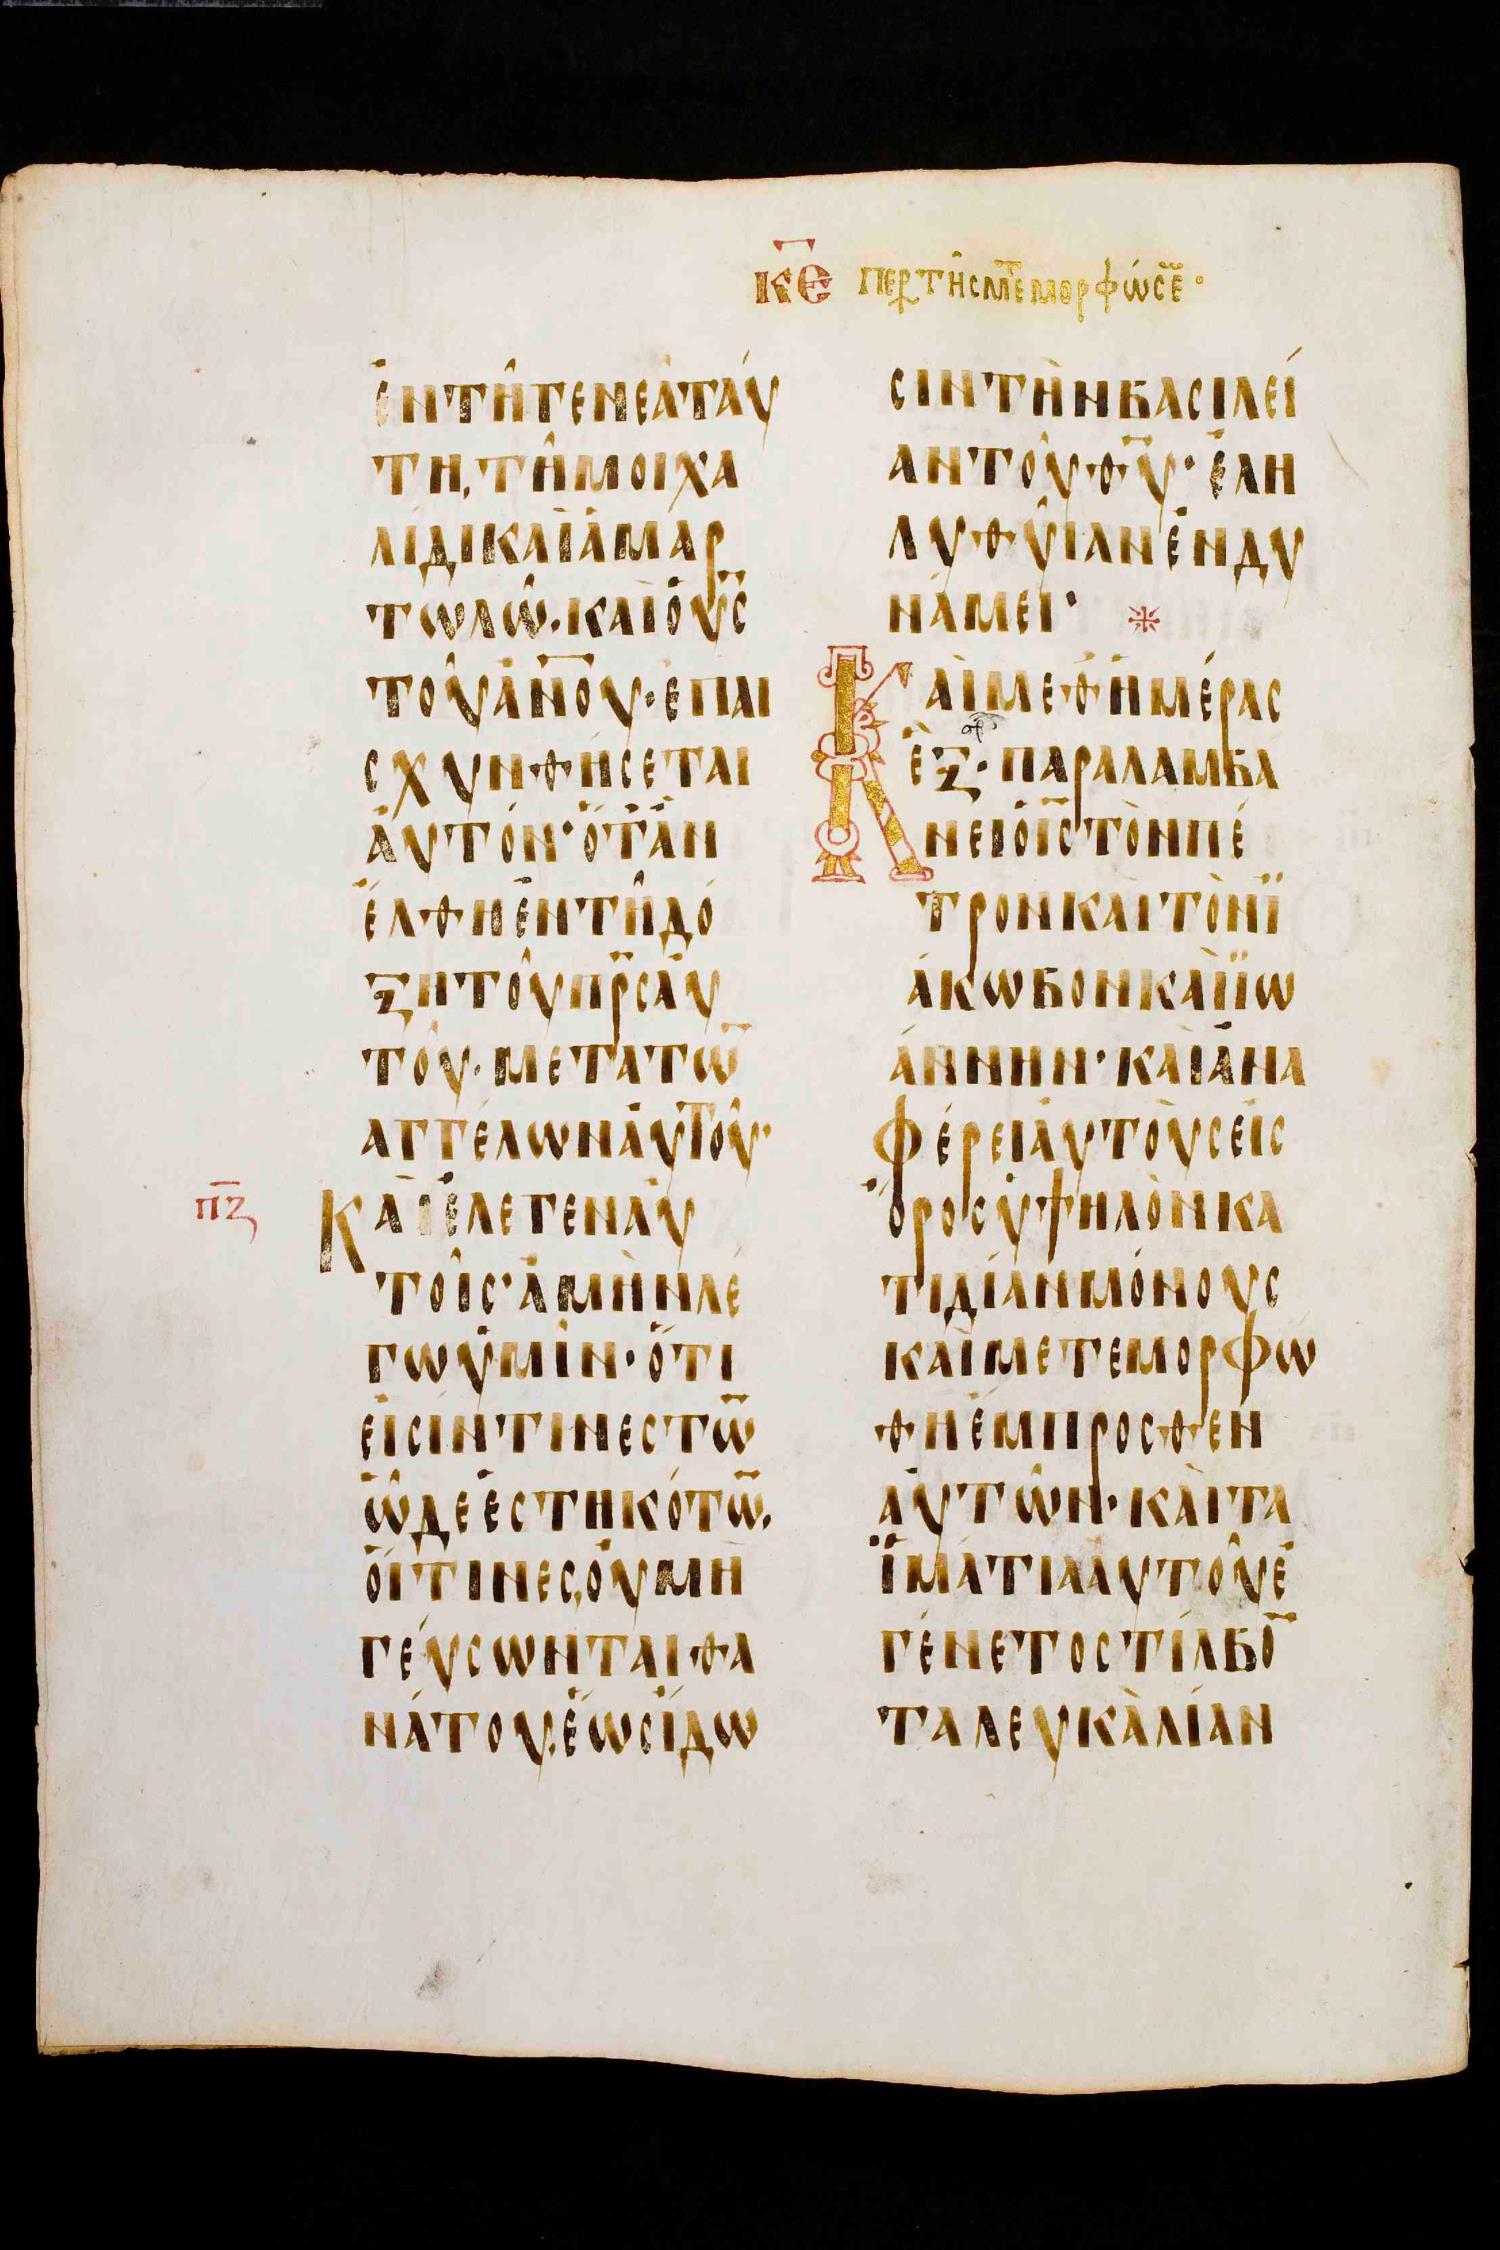 κε περ τῆς μτεμορφώσε·
ἐν τῆ γενεὰ ταύ
τη, τῆ μοιχα
λίδι καὶ ἁμαρ
τωλῶ. καὶ ὁ υς
τοῦ ανου· ἐπαι
σχυνθήσεται
αὐτόν· ὅτἂν
ἔλθη ἐν τῆ δό
ξη τοῦ πρς αὐ
τοῦ· μετα τω
ἀγγέλων αὐτοῦ·
πζ
Καὶ ἔλεγεν αὐ
τοῖς· ἀμὴν λέ
γω ὑμῖν· ὅτι
εἰσίν τινες τῶ
ὧδε ἑστηκότω,
οἵτινες, οὐ μὴ
γεύσωνται θα
νάτου, ἕως ἴδω
σιν τὴν βασιλεί
αν τοῦ θυ· ἐλη
λυθυῖαν ἐν δυ
νάμει·
Καὶ μεθ ἡμέρας
ἓξ· παραλαμβά
νει ὁ ις τὸν πέ
τρον καὶ τὸν ϊ
άκωβον καὶ ϊω
άννην· καὶ ἀνα
φέρει αὐτοὺς εἰς
ὄρος ὑψηλὸν κα
τιδίαν μόνους
καὶ μετεμορφώ
θη ἔμπροσθεν
αὐτῶν· καὶ τα
ἱμάτια αυτοῦ ἐ
γένετο στίλβο
τα λευκὰ λίαν